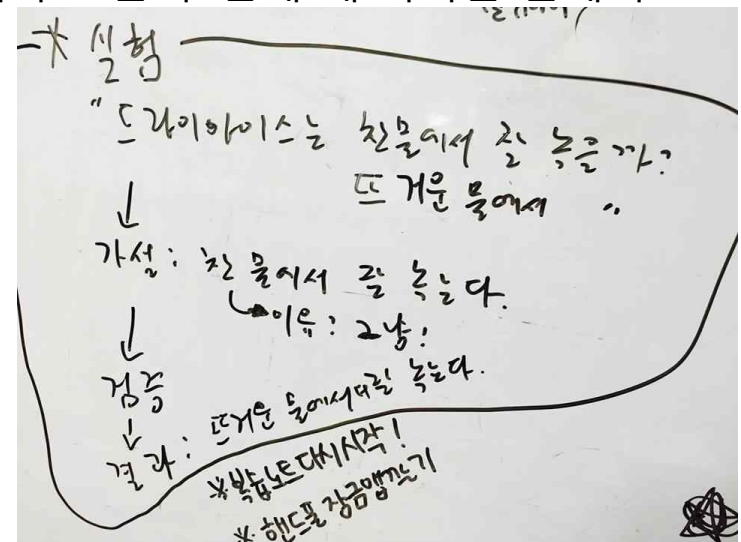 * 실험
"드라이아이스는 찬물에서 잘 녹을까?
뜨거운 물에서 "
↓
가설: 찬물에서 잘 녹는다.
이유: 그냥!
↓
검증
↓
결과: 뜨거운 물에서 더 잘 녹는다.
※복습노트 다시 시작!
※ 핸드폰 잠금앱 깔기